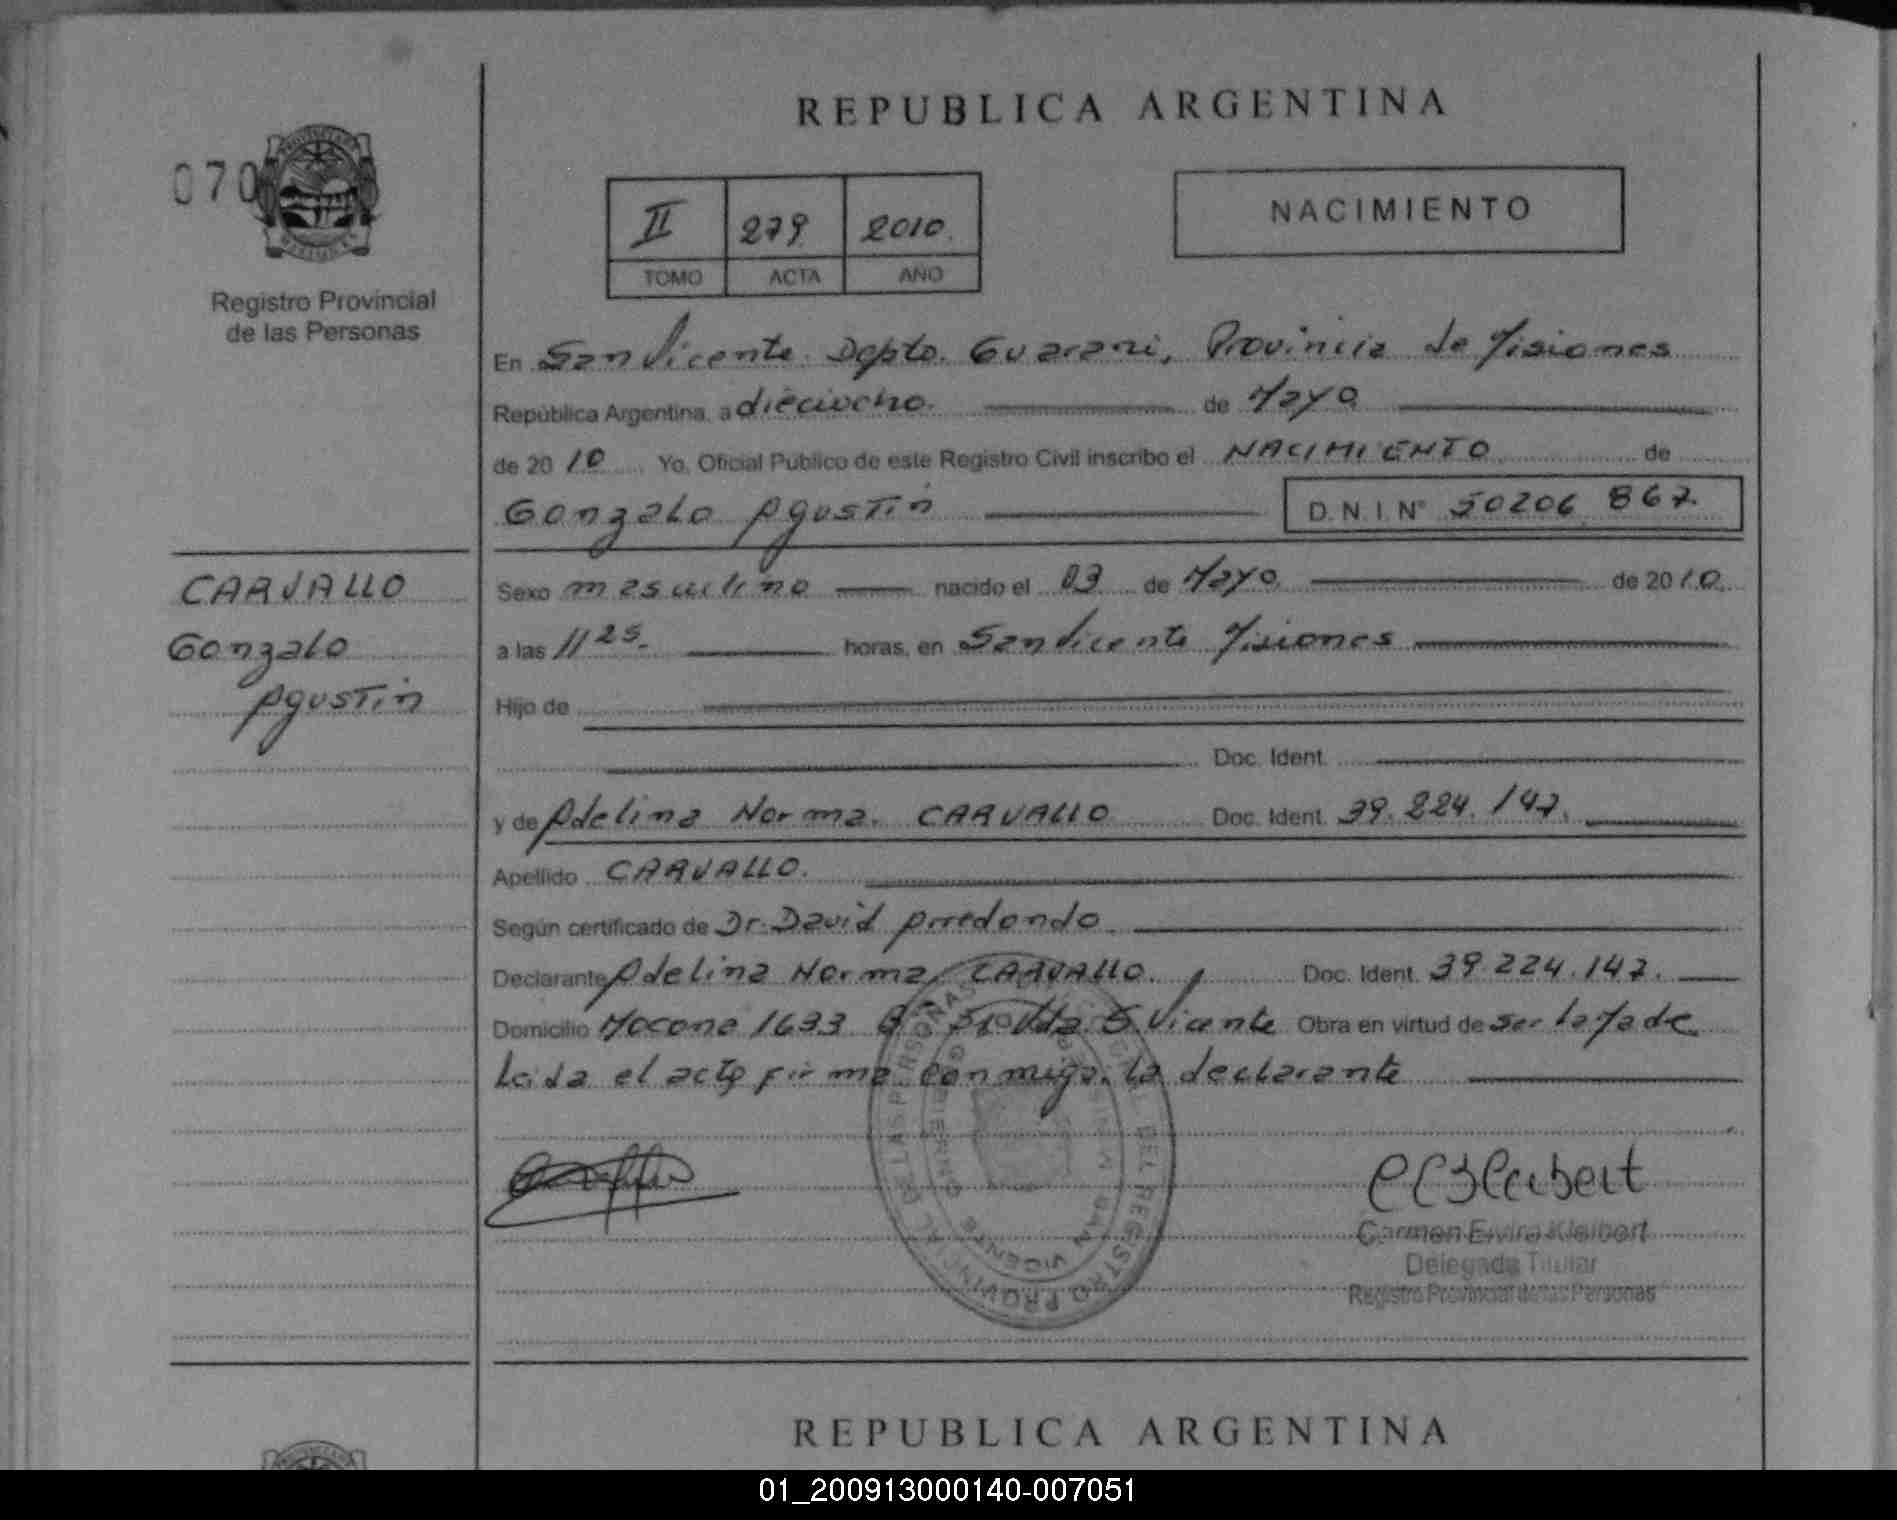 REPUBLICA ARGENTINA
070
II 279 2010
TOMO ACTA AÑO
NACIMIENTO
Registro Provincial
de las Personas
En San Vicente Depto. Guarani, Provincia de Misiones
República Argentina, a dieciocho. de Mayo
de 2010 Yo, Oficial Público de este Registro Civil inscribo el NACIMIENTO de
Gonzalo Agustin D.N.I. N° 50206 867
CARVALLO
Gonzalo
Agustin
Sexo masculino nacido el 03 de Mayo de 2010
a las 11 25 horas, en San Vicente Misiones
Hijo de
Doc. Ident.
y de Adelina Norma. CARVALLO Doc. Ident. 39.224.147.
Apellido CARVALLO.
Según certificado de Dr. David Arredondo
Declarante Adelina Norma, CARVALLO. Doc. Ident. 39.224.147.
Domicilio Mocona 1633 S. Vicente Obra en virtud de ser la Madre
Leida el acta firma conmigo. la declarante
DEL REGISTRO PROVINCIAL DE LAS PERSONAS
SAN VICENTE
Carmen Elvira Kleibert
Delegada Titular
Registro Provincial de las Personas
REPUBLICA ARGENTINA
01_200913000140-007051